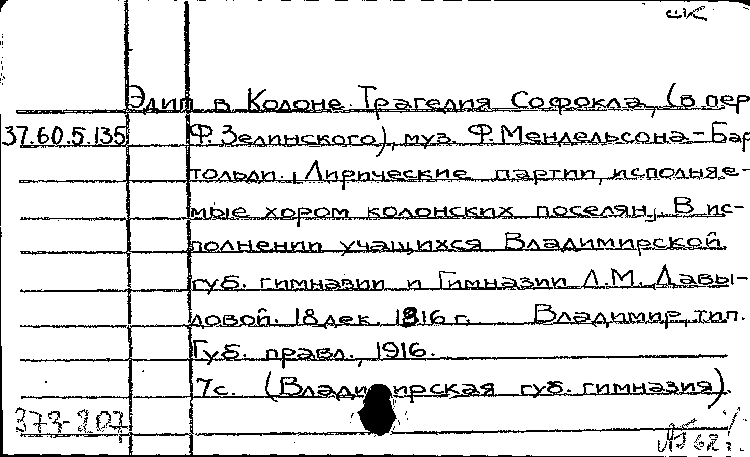 ск
Эдип в Колоне. Трагедия Софокла, (в пер
37.60.5.135 Ф. Зелинского), муз. Ф. Мендельсона-Бар
тольди. „Лирические партии, исполняе-
мые хором колонских поселян„. В ис-
полнении учащихся Владимирской
губ. гимназии и Гимназии Л.М. Давы-
довой. 18 дек. 1916 г. Владимир, тип.
Губ. правл., 1916.
7с. (Владимирская губ. гимназия).
373-207
62 г.